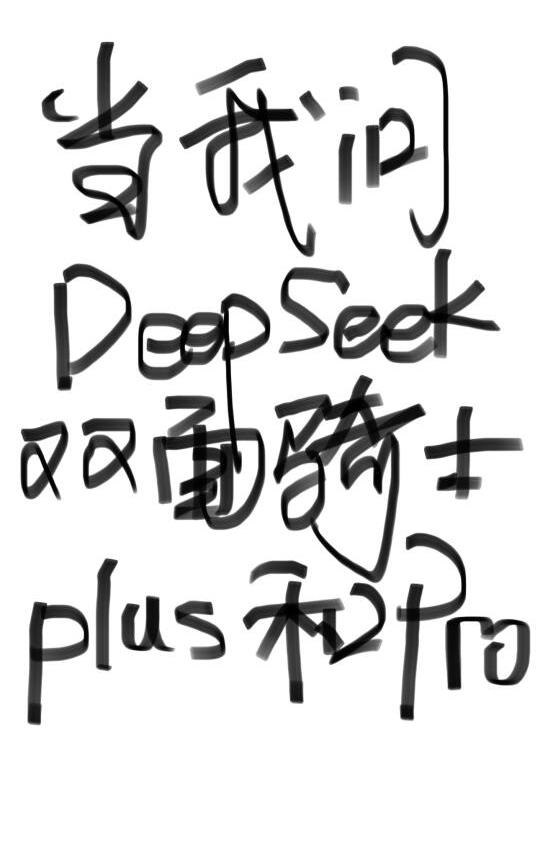 当我问
DeepSeek
双面骑士
plus和Pro